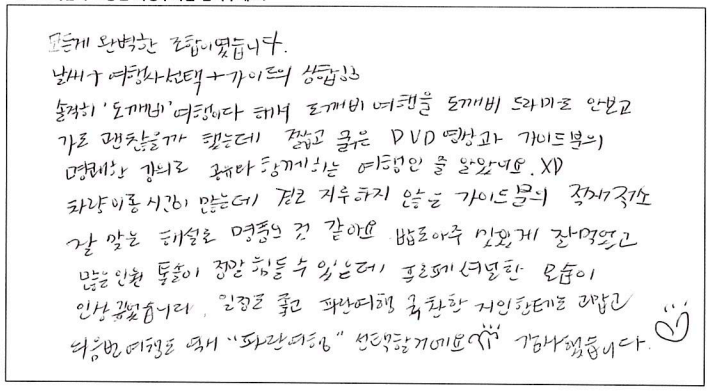 모든게 완벽한 조합이였습니다.
날씨+여행사선택+가이드의 삼합!:)
솔직히 '도깨비'여행이다 해서 도깨비 여행을 도깨비 드라마도 안보고
가도 괜찮을까 했는데 짧고 굵은 DVD영상과 가이드분의
명쾌한 강의로 공유와 함께하는 여행인 줄 알았네요. XD
차량이동시간이 많는데 결코 지루하지 않는 가이드분의 적재적소
잘 맞는 해설로 명품인 것 같아요 밥도아주 맛있게 잘먹었고
많은인원 통솔이 정말 힘들 수 있는데 프로페셔널한 모습이
인상깊었습니다. 일정도 좋고 파란여행 추천한 지인한테도 고맙고
다음번 여행도 역시 "파란여행" 선택할거에요 감사했습니다.